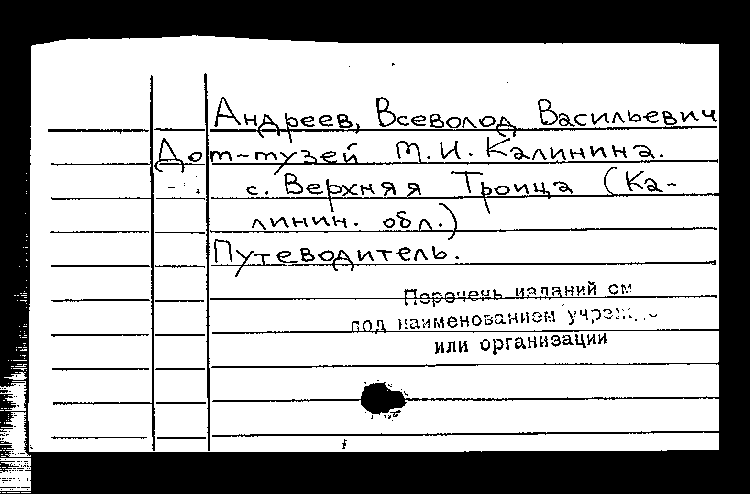 Андреев, Всеволод Васильевич
Дом-музей М.И. Калинина.
с. Верхняя Троица (Ка-
линин. обл.)
Путеводитель.
Перечень изданий см
под наименованием
или организации